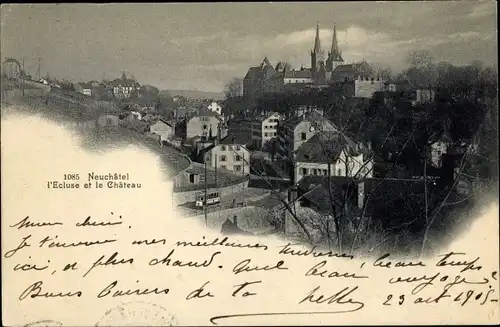 1085 Neuchâtel
l'Ecluse et le Château
Mon chéri.
Je t'envoie mes meilleures tendresses
ici, il plus chaud. Quel beau, beau voyage!
Bons baisers de ta Nelly
23 oct 1905